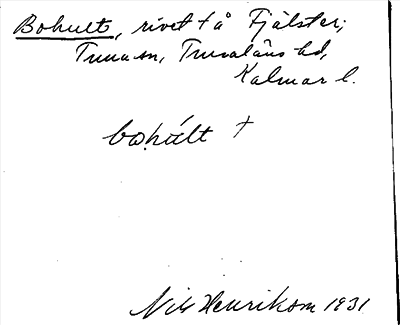 Bohult, rivet t å Fjälster;
Tuna sn, Tunaläns hd,
Kalmar l.
bo̤húlt +
Nils Henrikson 1931